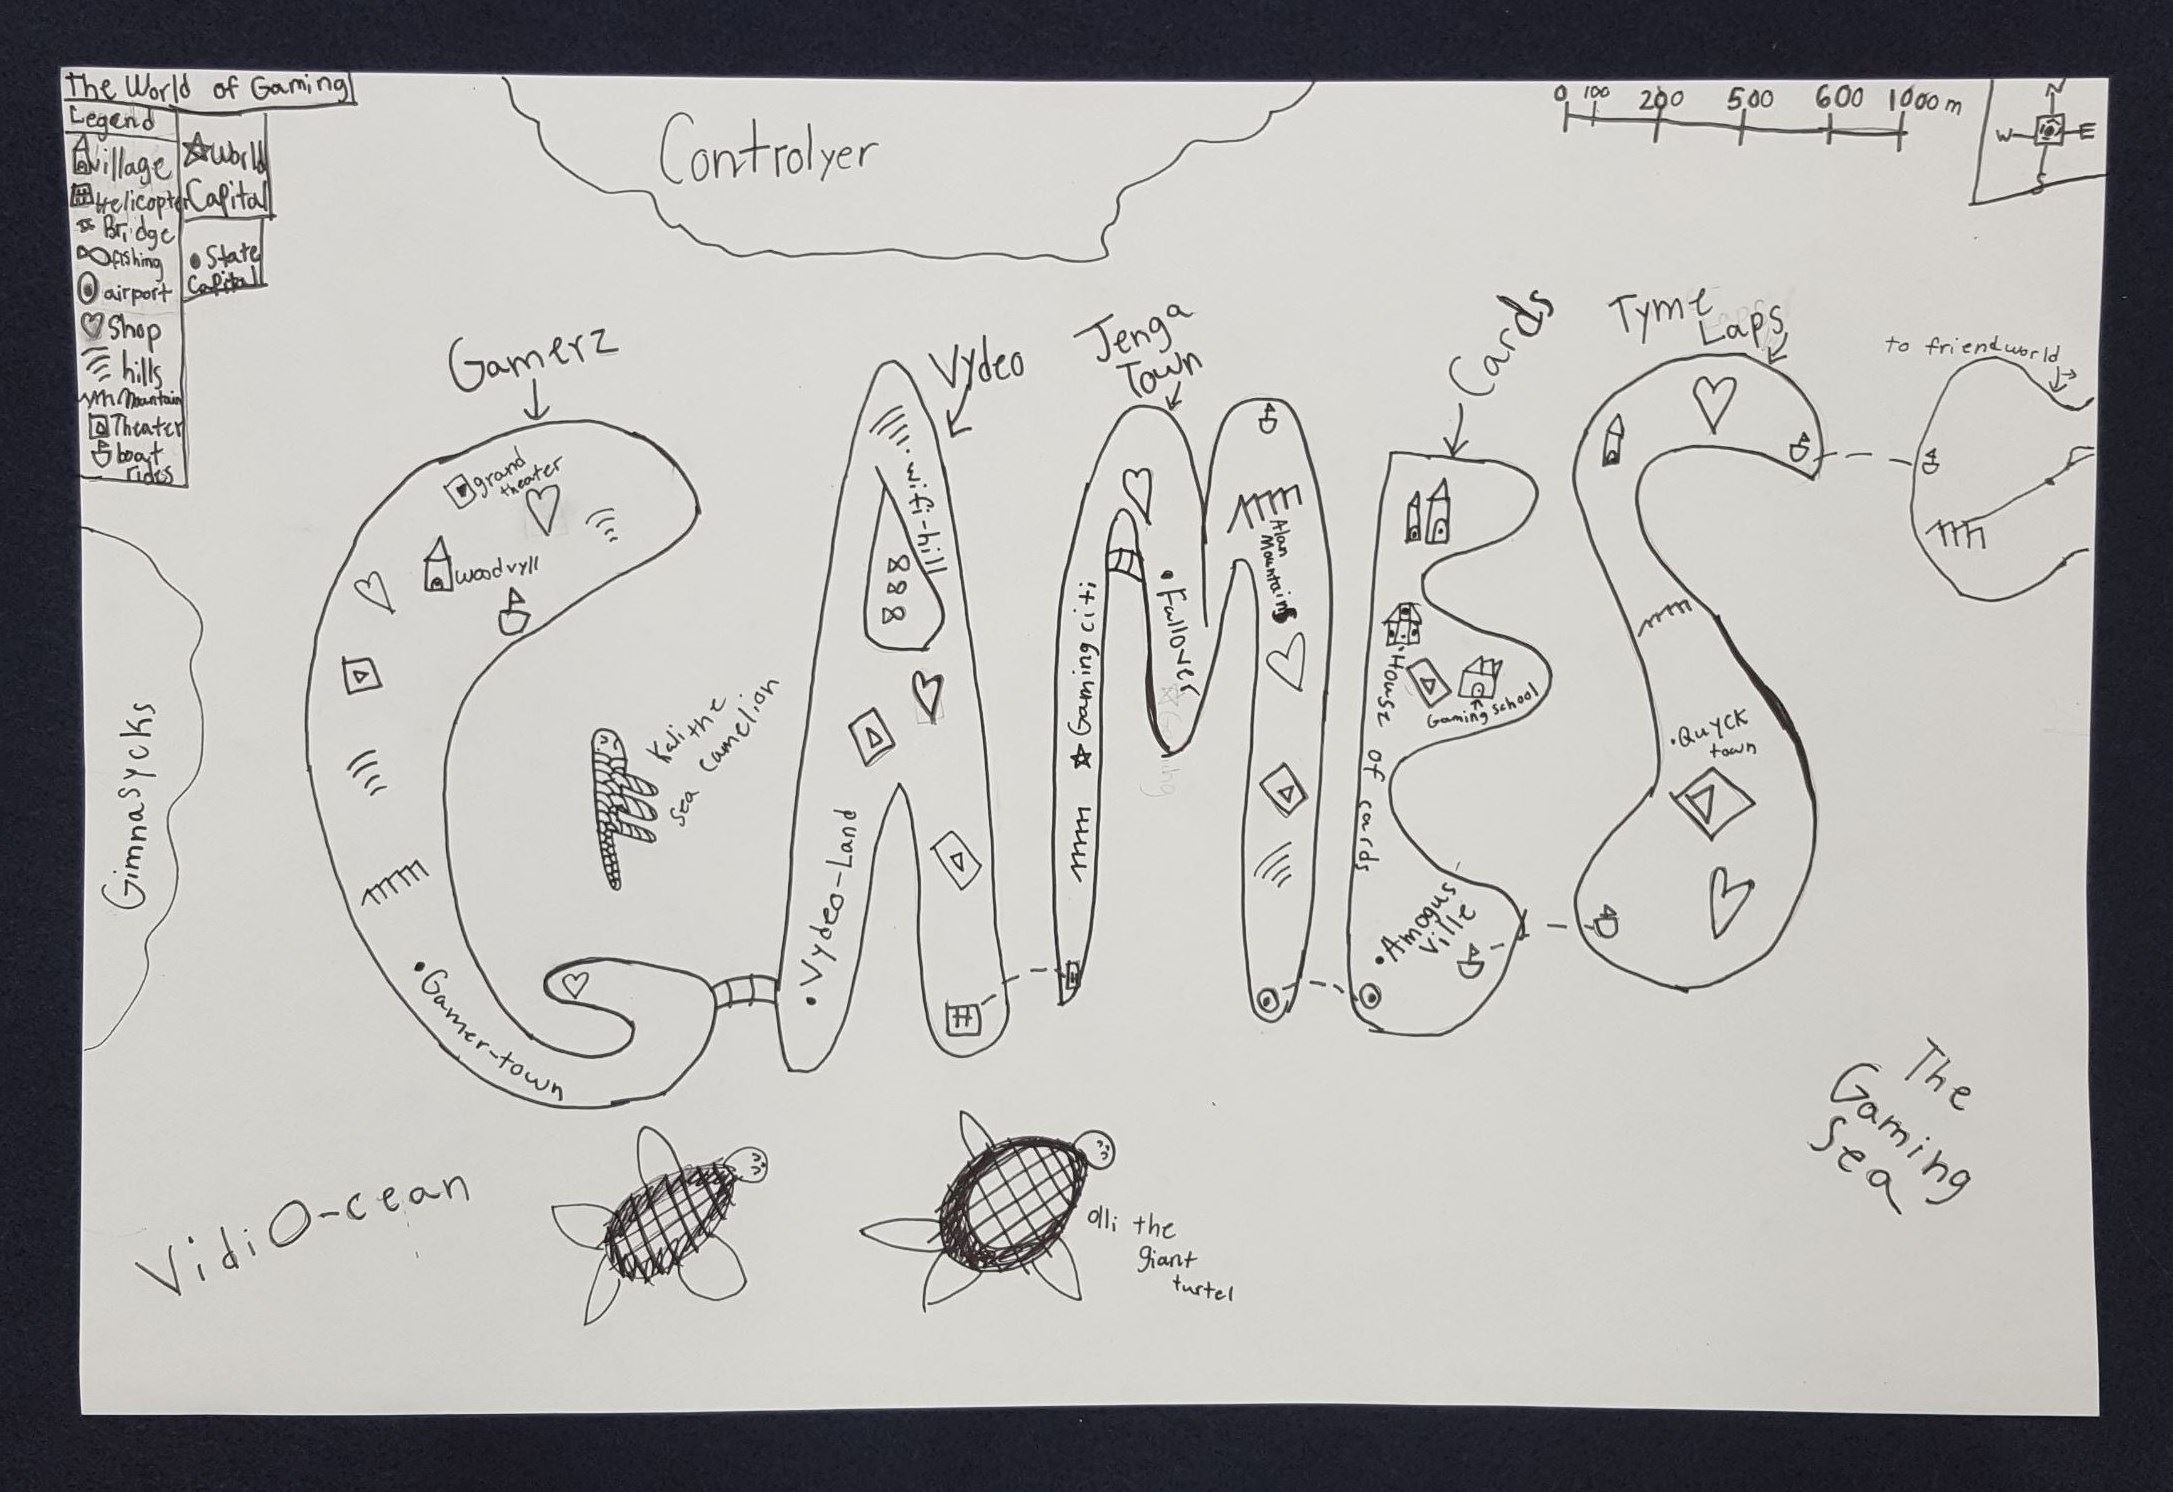 The World of Gaming
Legend
village
Helicopter
Bridge
fishing
airport
Shop
hills
Mountain
Theater
boat
rides
World
Capital
State
Capital
Controlyer
0 100 200 500 600 1000 m
N
W E
S
Gamerz
Vydeo
Jenga
Town
Cards
Tyme
Laps
to friendworld
grand
theater
woodvyll
Gamer-town
Kali the
sea camelion
wifi-hill
Vydeo-Land
Gaming citi
Fallover
Alan
Mountains
House of cards
Gaming school
Amogus
Ville
Quyck
town
Gimnasycks
VidiO-cean
olli the
giant
turtel
The
Gaming
Sea